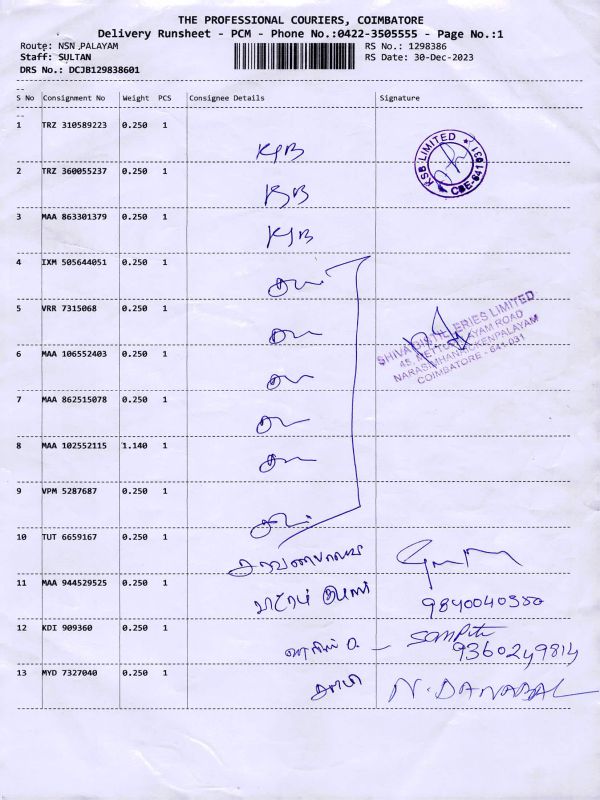 THE PROFESSIONAL COURIERS, COIMBATORE
Delivery Runsheet - PCM - Phone No.:0422-3505555 - Page No.:1
Route: NSN PALAYAM RS No.: 1298386
Staff: SULTAN RS Date: 30-Dec-2023
DRS No.: DCJB129838601
--
S No Consignment No Weight PCS Consignee Details Signature
--
1 TRZ 310589223 0.250 1
KSB LIMITED * CBE-641031 *
2 TRZ 360055237 0.250 1
3 MAA 863301379 0.250 1
4 IXM 505644051 0.250 1
5 VRR 7315068 0.250 1
SHIVA DISTILLERIES LIMITED
45, METTUPALAYAM ROAD
NARASIMHANAICKENPALAYAM
COIMBATORE - 641 031
6 MAA 106552403 0.250 1
7 MAA 862515078 0.250 1
8 MAA 102552115 1.140 1
9 VPM 5287687 0.250 1
10 TUT 6659167 0.250 1
11 MAA 944529525 0.250 1
9840040550
12 KDI 909360 0.250 1
9360249814
13 MYD 7327040 0.250 1 N. DANABAL